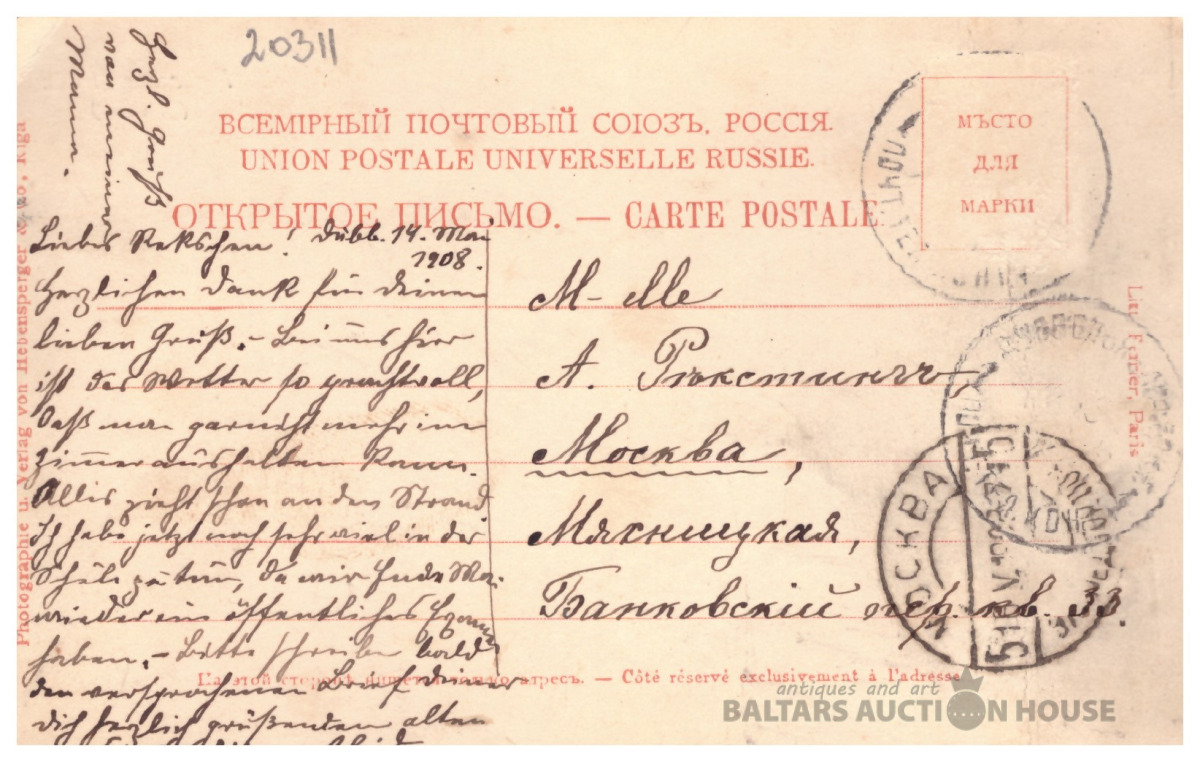 20311
Herzl. Gruß
von meiner
Mamma.
ВСЕМІРНЫЙ ПОЧТОВЫЙ СОЮЗЪ. РОССІЯ.
UNION POSTALE UNIVERSELLE RUSSIE.
ОТКРЫТОЕ ПИСЬМО. — CARTE POSTALE
МѢСТО
ДЛЯ
МАРКИ
Liebes Rekschen! Dubb. 14. Mai
1908.
Herzlichen Dank für Deinen
lieben Gruß. – Bei uns hier
ist das Wetter so prachtvoll,
daß man garnicht mehr im
Zimmer aushalten kann.
Alles zieht schon an den Strand
Ich habe jetzt noch sehr viel in der
Schule zu tun, da wir Ende Mai
wieder ein öffentliches Exam
haben. – Bitte schreibe bald
den versprochenen Brief Deiner
Dich herzlich grüßenden alten
M-elle
А. Рюкстингъ,
Москва,
Мясницкая,
Банковскій пер. кв. 33.
МОСКВА
На этой сторонѣ пишется только адресъ. — Côté réservé exclusivement à l'adresse
Photographie u. Verlag von Hebensperger & Co, Riga
Lith. Fernier, Paris
antiques and art
BALTARS AUCTION HOUSE